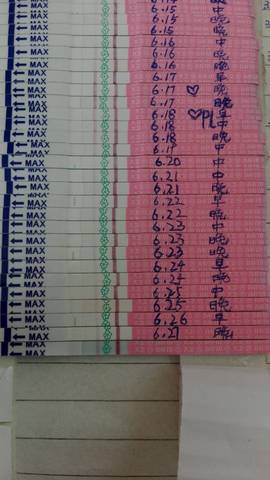 MAX 6.15 中
MAX 6.15 晚
MAX 6.15 晚
MAX 6.16 中
MAX 6.16 中
MAX 6.16 晚
MAX 6.17 早
MAX 6.17 ♡ 晚
MAX 6.17 晚
MAX 6.18 ♡ 早
MAX 6.18 PL 中
MAX 6.18 晚
MAX 6.19 中
MAX 6.20 中
MAX 6.21 中
MAX 6.21 晚
MAX 6.22 早
MAX 6.22 晚
MAX 6.23 中
MAX 6.23 晚
MAX 6.23 晚
MAX 6.24 早
MAX 6.24 晚
MAX 6.25 中
MAX 6.25 晚
MAX 6.26 早
MAX 6.27 晚
MAX